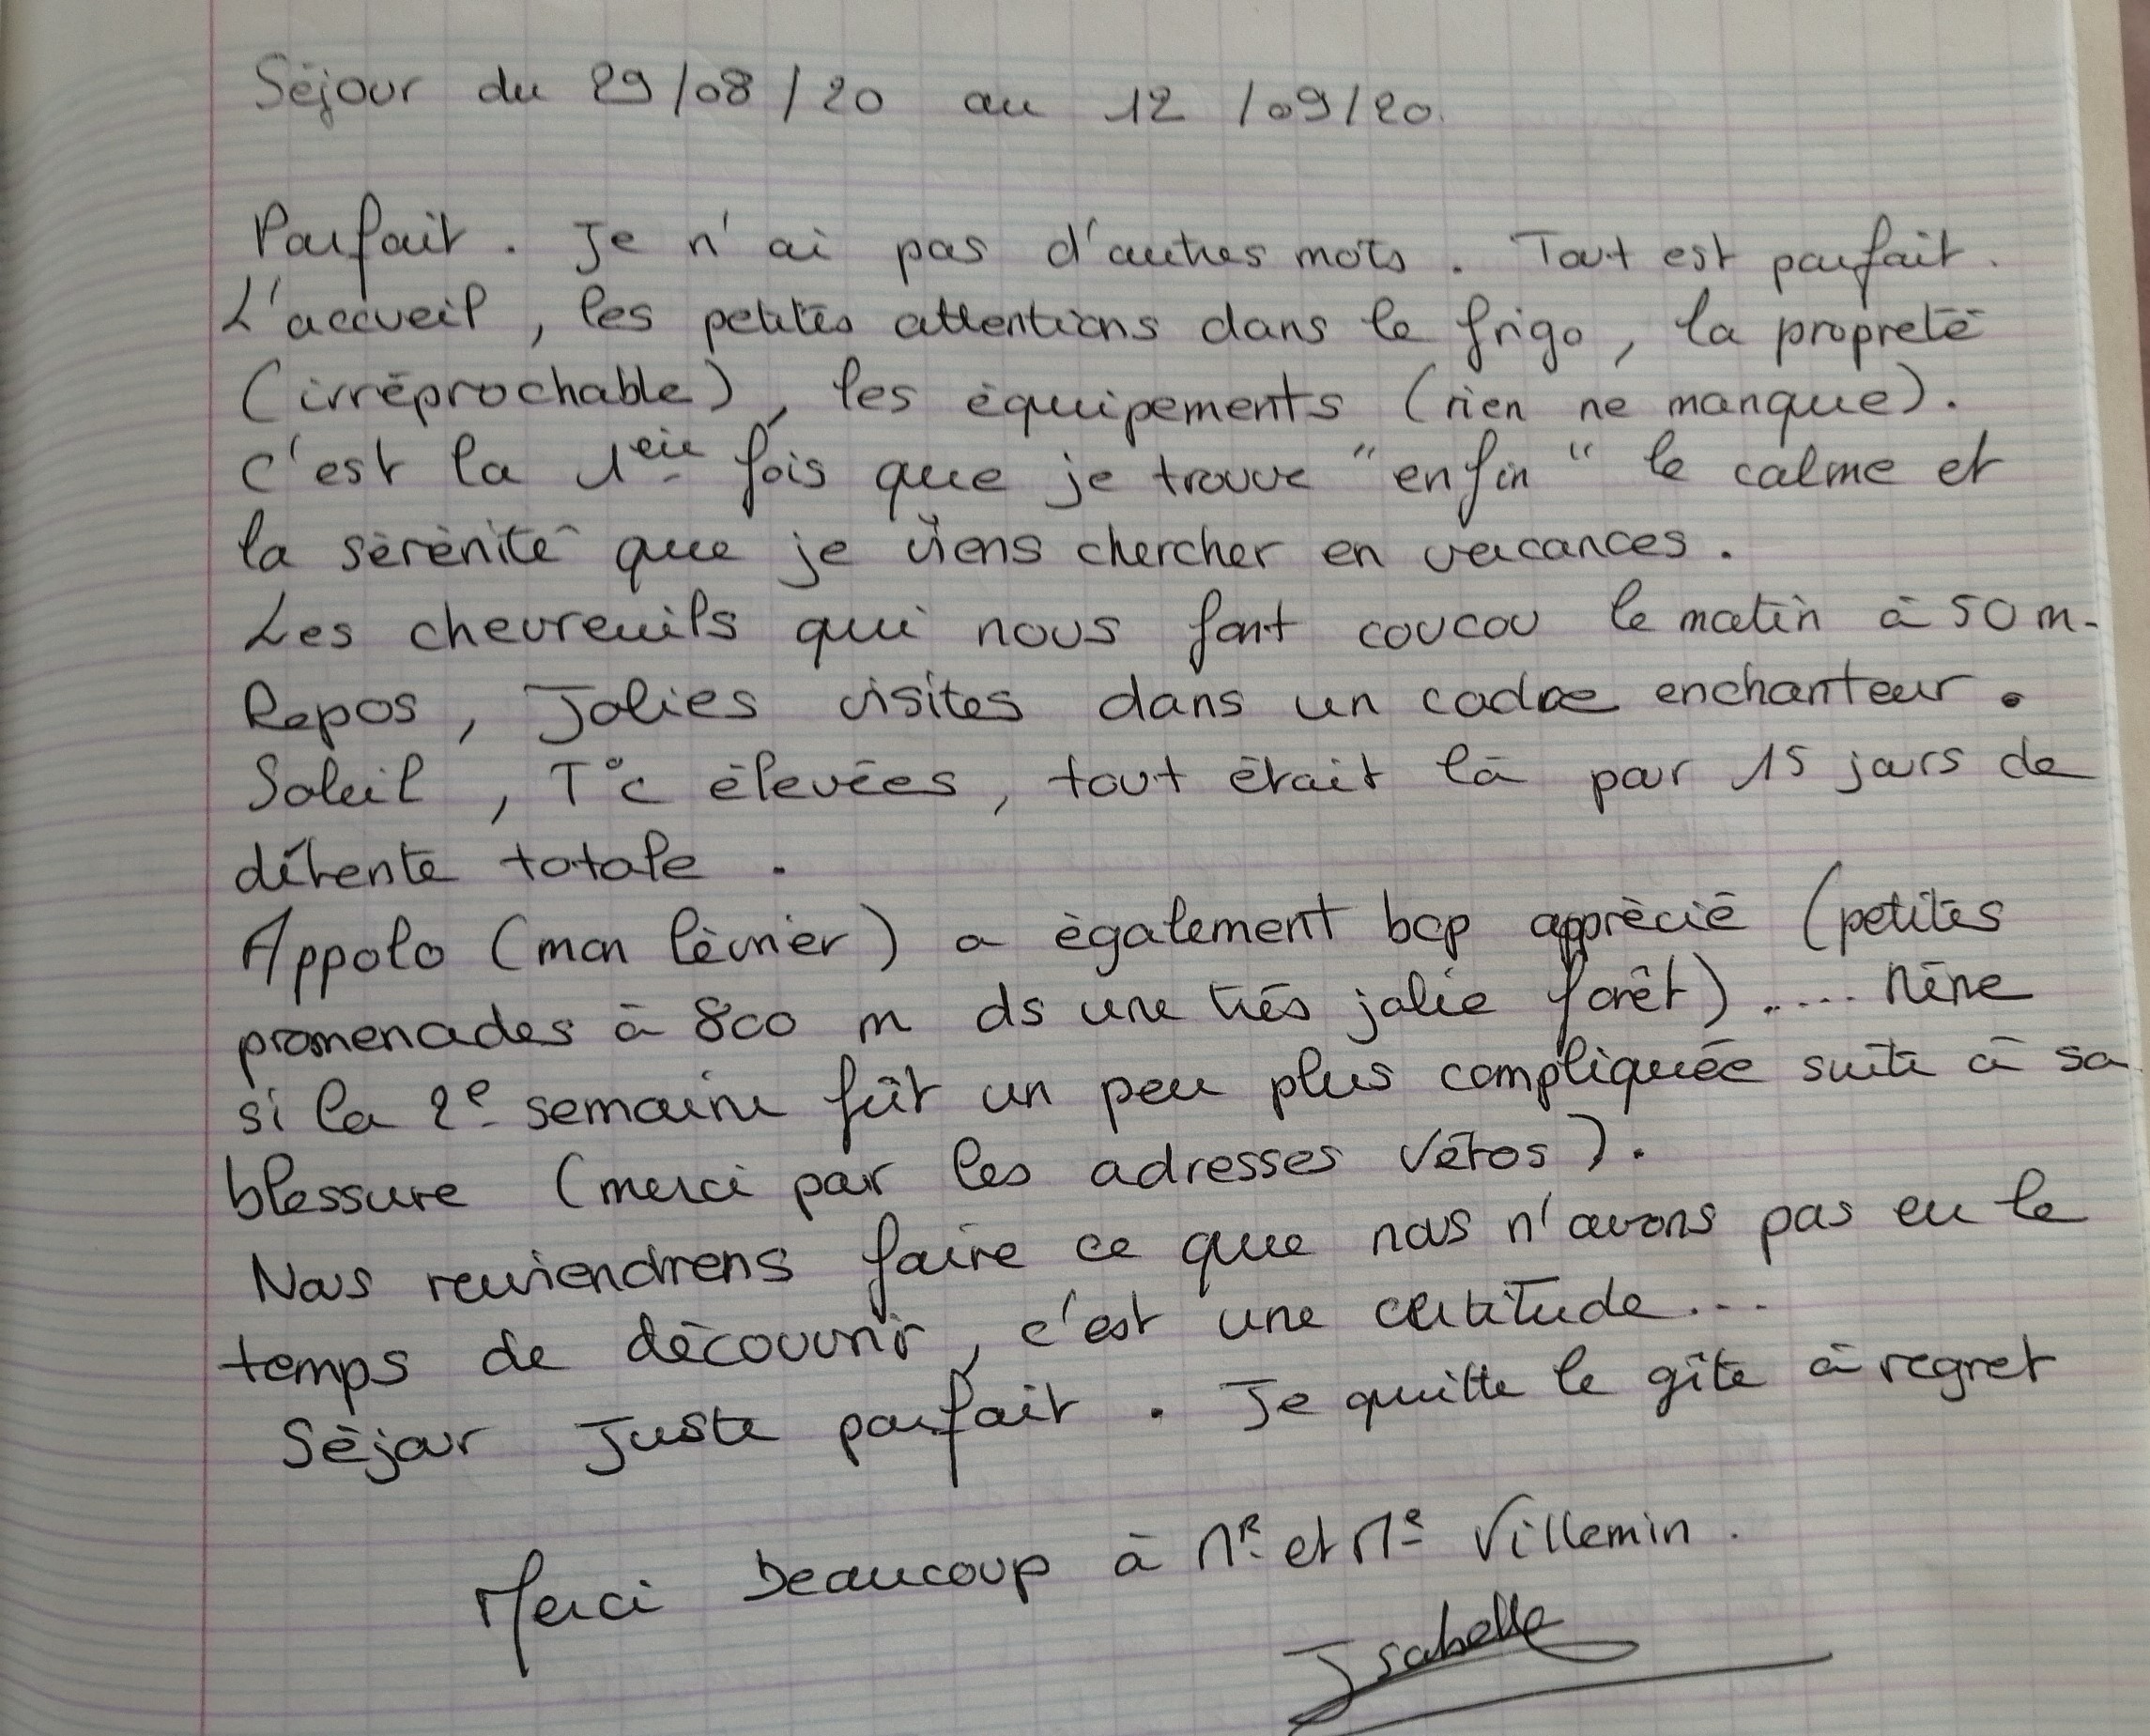 Séjour du 29/08/20 au 12/09/20.
Parfait. Je n'ai pas d'autres mots. Tout est parfait.
L'accueil, les petites attentions dans le frigo, la propreté
(irréprochable), les équipements (rien ne manque).
C'est la 1eie fois que je trouve "enfin" le calme et
la sérénité que je viens chercher en vacances.
Les chevreuils qui nous font coucou le matin à 50 m.
Repos, Jolies visites dans un cadre enchanteur.
Soleil, T°c élevées, tout était là pour 15 jours de
détente totale.
Appolo (mon lévrier) a également bcp apprécié (petites
promenades à 800 m ds une très jolie forêt) .... Même
si la 2e semaine fût un peu plus compliquée suite à sa
blessure (merci pour les adresses vétos).
Nous reviendrons faire ce que nous n'avons pas eu le
temps de découvrir, c'est une certitude...
Séjour Juste parfait. Je quitte le gîte à regret
Merci beaucoup à Mr et Me Villemin.
Isabelle